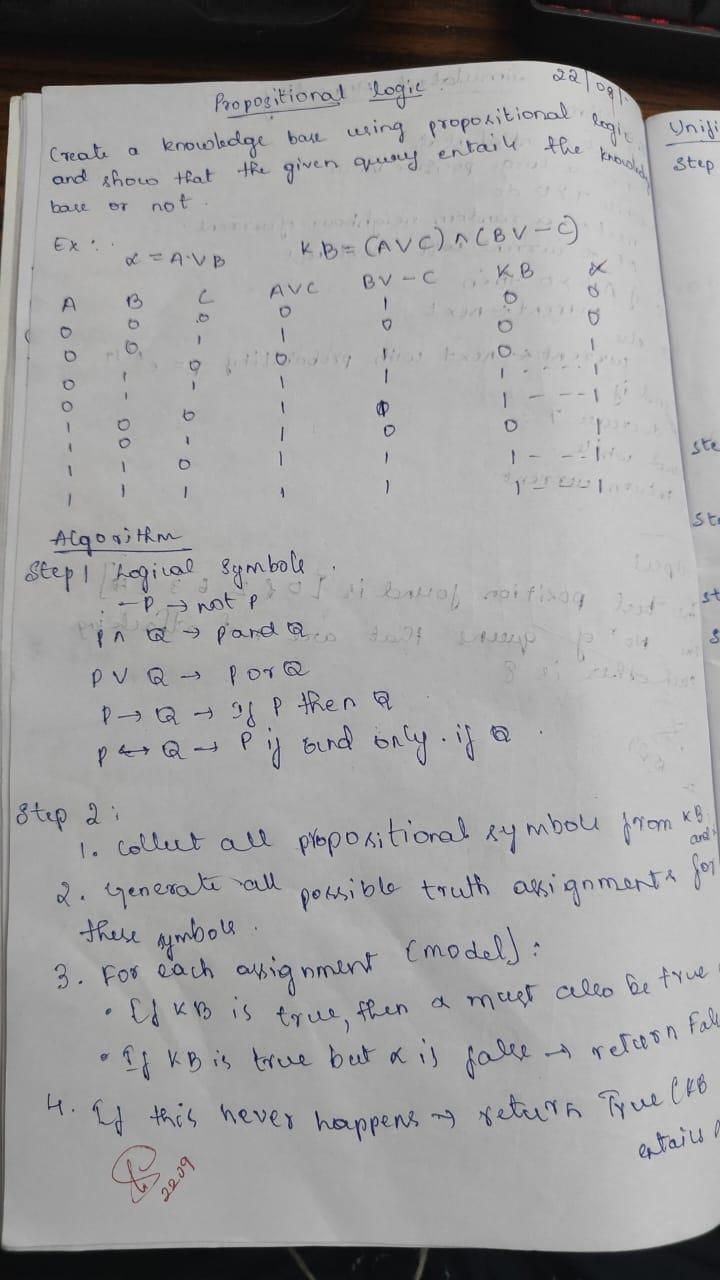 22/09/
Propositional logic.
Create a knowledge base using propositional logic
and show that the given query entails the knowledge
base or not.
Ex:. α = A∨B K.B = (A∨C) ∧ (B∨¬C)
A B C A∨C B∨¬C KB α
0 0 0 0 1 0 0
0 0 1 1 0 0 0
0 1 0 0 1 0 1
0 1 1 1 1 1 - - - - 1
1 0 0 1 1 - - - 1
1 0 1 1 0 0 1
1 1 0 1 1 1 - - - 1
1 1 1 1 1 1 1
Algorithm
Step 1 Logical symbols.
¬P → not P
P ∧ Q → P and Q
P ∨ Q → P or Q
P → Q → If P then Q
P ↔ Q → P if and only. if Q.
Step 2:
1. Collect all propositional symbols from KB and
2. Generate all possible truth assignments for
these symbols.
3. For each assignment (model):
• If KB is true, then α must also be true
• If KB is true but α is false → return Fal
4. If this never happens → return True (KB
entails
2209
Unifi
Step
Ste
St
st
S